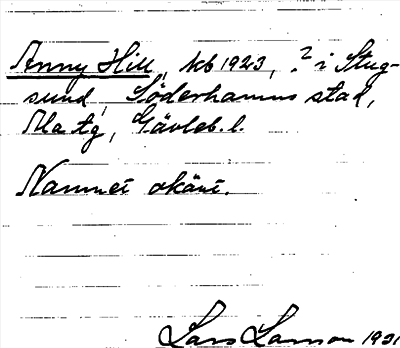 Jenny Hill, kb 1923, ? i Stug-
sund, Söderhamns stad,
Ma tg, Gävleb. l.
Namnet okänt.
Lars Larsson 1931